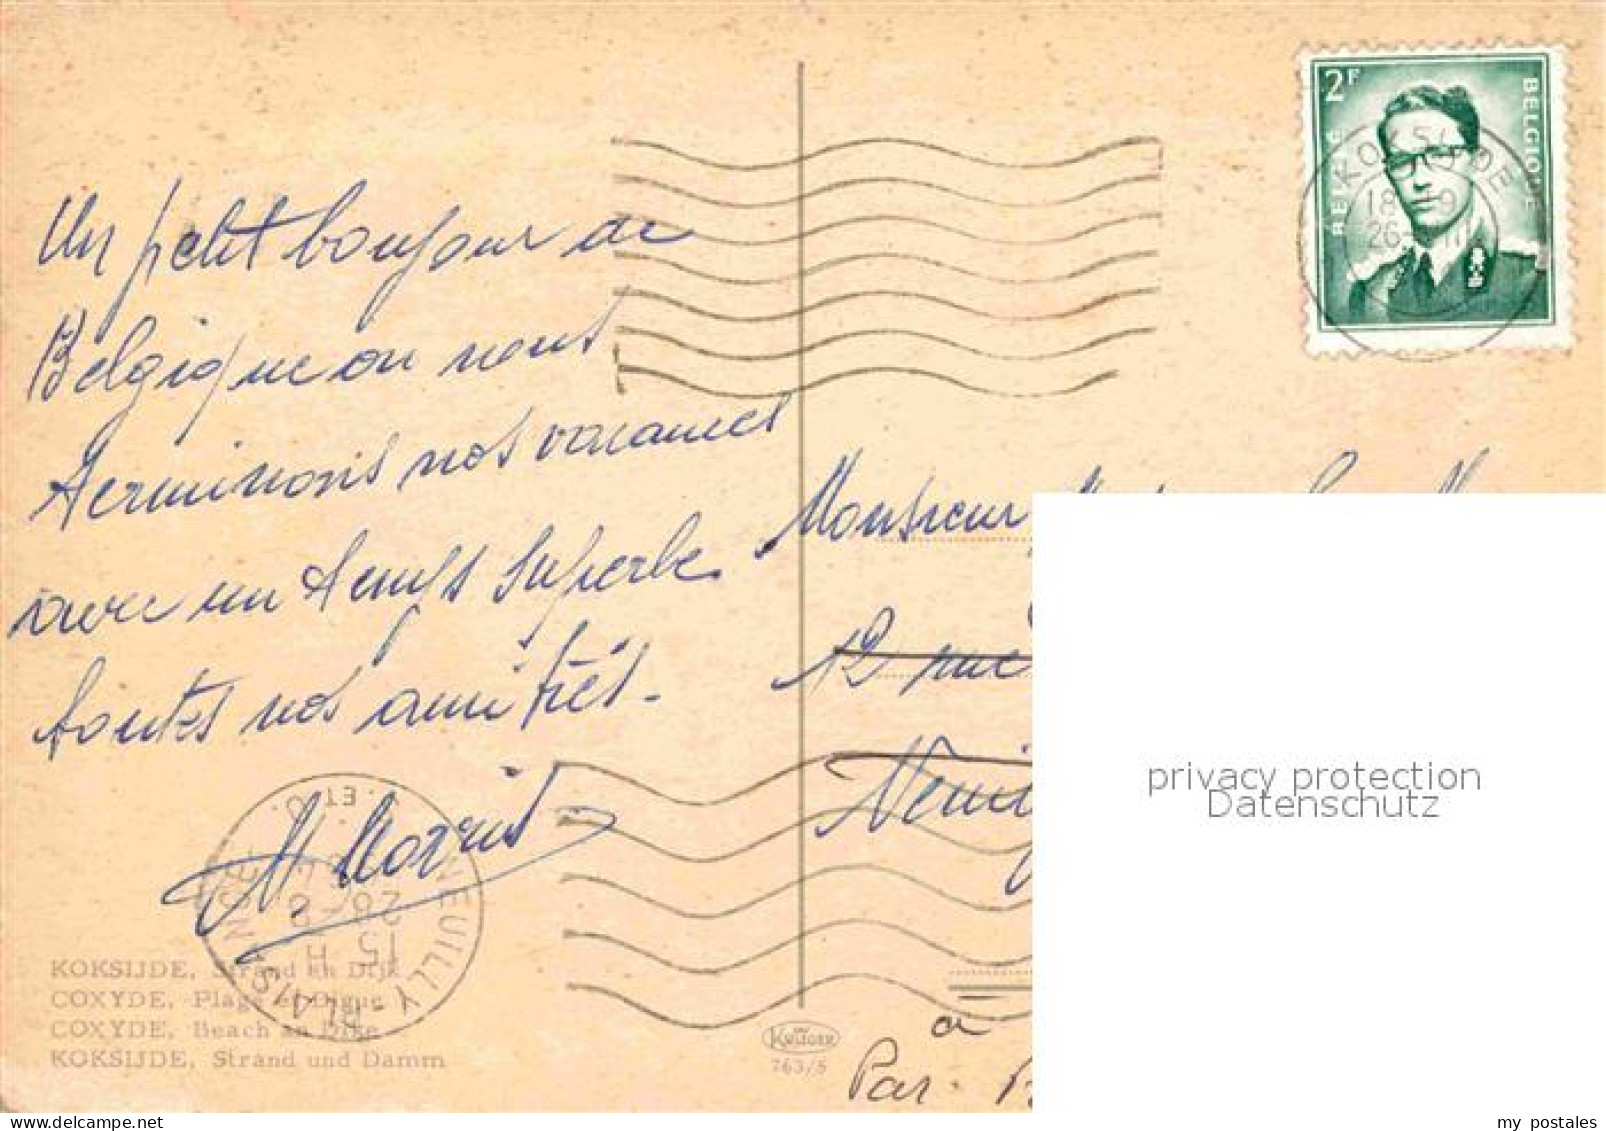 2F
BELGIQUE
BELGIE
KOKSIJDE
18
26
Un petit bonjour de
Belgique ou nous
terminons nos vacances
avec un temps superbe
toutes nos amitiés -
Monsieur
12 rue
NEUILLY
15 H
28 - 8
KOKSIJDE, Strand en Dijk
COXYDE, Plage et Digue
COXYDE, Beach an Dike
KOKSIJDE, Strand und Damm
KRÜGER
763/5
a
Par.
privacy protection
Datenschutz
my postales